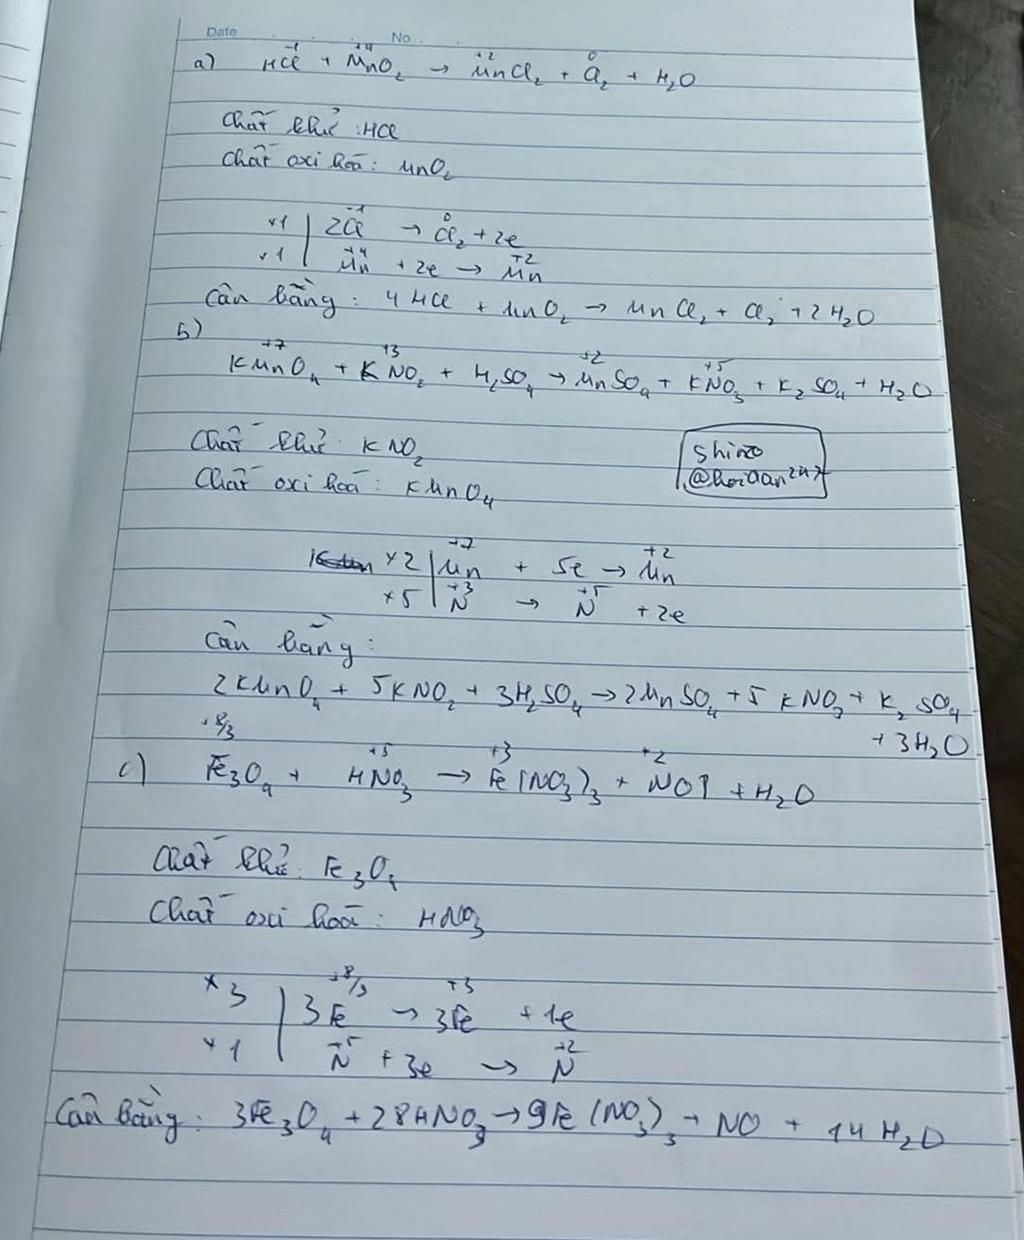 Date No
a) HCl⁻¹ + Mn⁺⁴O₂ → Mn⁺²Cl₂ + Cl₂⁰ + H₂O
Chất khử : HCl
Chất oxi hoá : MnO₂
×1 | 2Cl⁻¹ → Cl₂⁰ + 2e
×1 | Mn⁺⁴ + 2e → Mn⁺²
Cân bằng : 4HCl + MnO₂ → MnCl₂ + Cl₂ + 2H₂O
b)
KMn⁺⁷O₄ + KN⁺³O₂ + H₂SO₄ → Mn⁺²SO₄ + KN⁺⁵O₃ + K₂SO₄ + H₂O
Chất khử : KNO₂
Chất oxi hoá : KMnO₄
Shino
@hoidan247
×2 | Mn⁺⁷ + 5e → Mn⁺²
×5 | N⁺³ → N⁺⁵ + 2e
Cân bằng :
2KMnO₄ + 5KNO₂ + 3H₂SO₄ → 2MnSO₄ + 5KNO₃ + K₂SO₄
+ 3H₂O
c) Fe₃⁺⁸/³O₄ + HN⁺⁵O₃ → Fe⁺³(NO₃)₃ + N⁺²O↑ + H₂O
Chất khử : Fe₃O₄
Chất oxi hoá : HNO₃
×3 | 3Fe⁺⁸/³ → 3Fe⁺³ + 1e
×1 | N⁺⁵ + 3e → N⁺²
Cân bằng : 3Fe₃O₄ + 28HNO₃ → 9Fe(NO₃)₃ + NO + 14H₂O